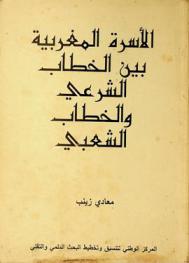 الأسرة المغربية
بين الخطاب
الشرعي
والخطاب
الشعبي
معادي زينب
المركز الوطني لتنسيق وتخطيط البحث العلمي والتقني